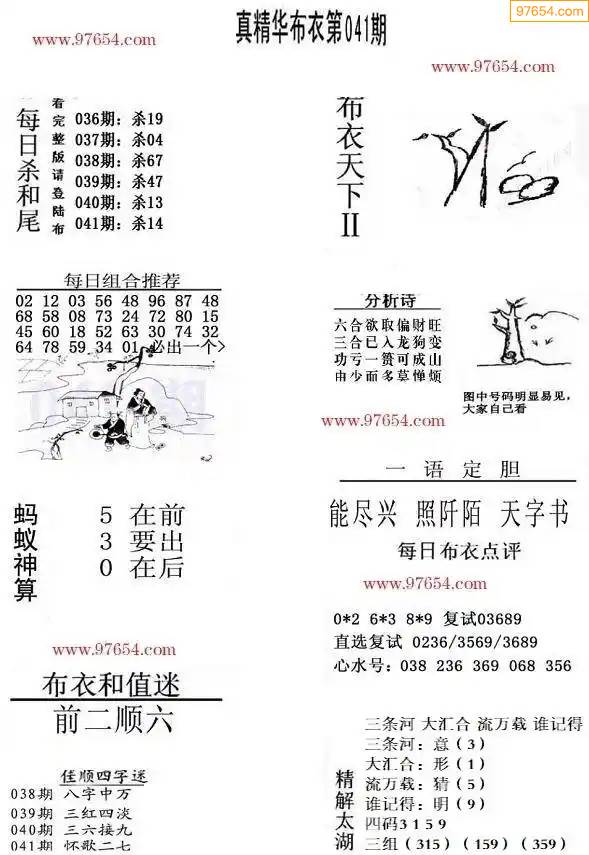 97654.com
真精华布衣第041期
www.97654.com
www.97654.com
每日杀和尾
看完整版请登陆布
036期：杀19
037期：杀04
038期：杀67
039期：杀47
040期：杀13
041期：杀14
布衣天下II
每日组合推荐
02 12 03 56 48 96 87 48
68 58 08 73 24 72 80 15
45 60 18 52 63 30 74 32
64 78 59 34 01 必出一个>
分析诗
六合欲取偏财旺
三合已入龙狗变
功亏一篑可成山
由少而多莫惮烦
图中号码明显易见，
大家自己看
www.97654.com
蚂蚁神算
5 在前
3 要出
0 在后
一语定胆
能尽兴 照阡陌 天字书
每日布衣点评
www.97654.com
0*2 6*3 8*9 复试03689
直选复试 0236/3569/3689
心水号：038 236 369 068 356
www.97654.com
布衣和值迷
前二顺六
佳顺四字迷
038期 八字中万
039期 三红四淡
040期 三六接九
041期 怀歌二七
精解太湖
三条河 大汇合 流万载 谁记得
三条河：意（3）
大汇合：形（1）
流万载：猜（5）
谁记得：明（9）
四码3159
三组（315）（159）（359）